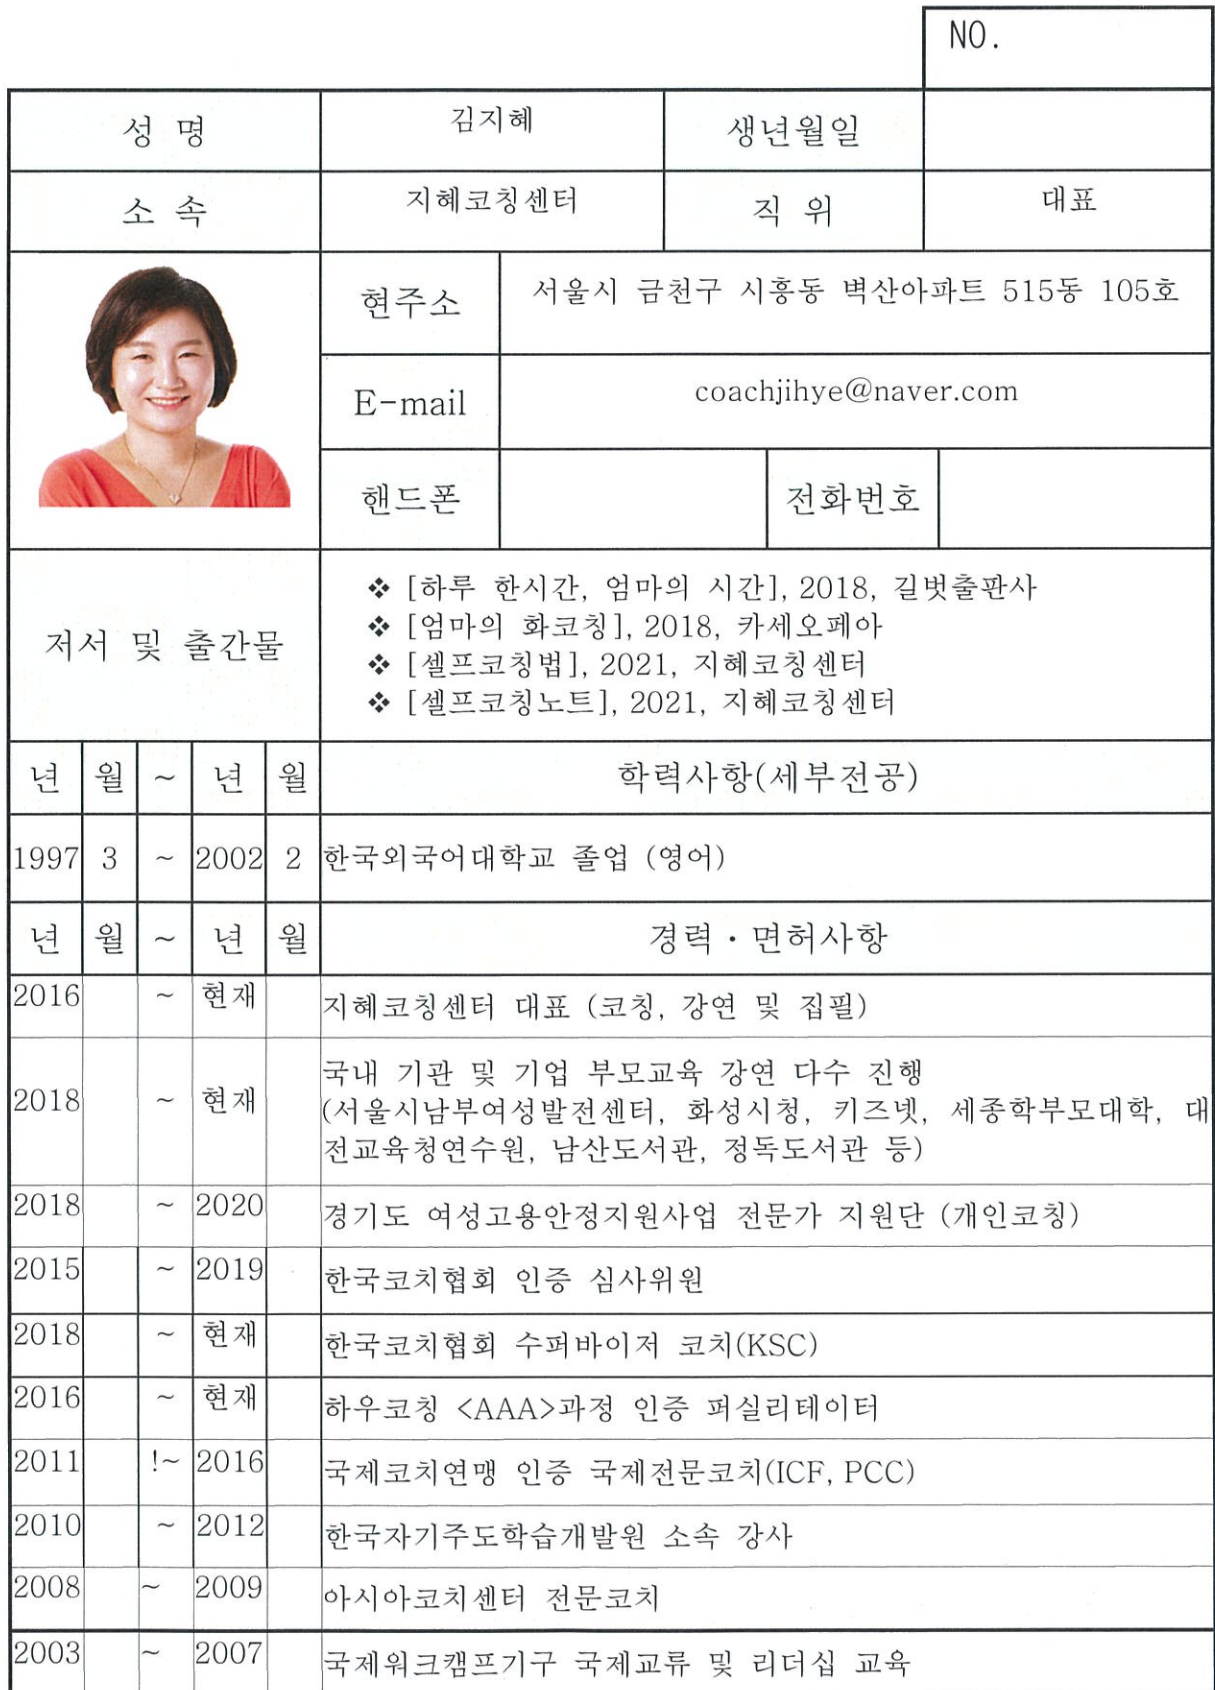 NO.
성 명 김지혜 생년월일
소 속 지혜코칭센터 직 위 대표
현주소 서울시 금천구 시흥동 벽산아파트 515동 105호
E-mail coachjihye@naver.com
핸드폰 전화번호
저서 및 출간물
❖ [하루 한시간, 엄마의 시간], 2018, 길벗출판사
❖ [엄마의 화코칭], 2018, 카세오페아
❖ [셀프코칭법], 2021, 지혜코칭센터
❖ [셀프코칭노트], 2021, 지혜코칭센터
년 월 ~ 년 월 학력사항(세부전공)
1997 3 ~ 2002 2 한국외국어대학교 졸업 (영어)
년 월 ~ 년 월 경력・면허사항
2016 ~ 현재 지혜코칭센터 대표 (코칭, 강연 및 집필)
2018 ~ 현재 국내 기관 및 기업 부모교육 강연 다수 진행
(서울시남부여성발전센터, 화성시청, 키즈넷, 세종학부모대학, 대
전교육청연수원, 남산도서관, 정독도서관 등)
2018 ~ 2020 경기도 여성고용안정지원사업 전문가 지원단 (개인코칭)
2015 ~ 2019 한국코치협회 인증 심사위원
2018 ~ 현재 한국코치협회 수퍼바이저 코치(KSC)
2016 ~ 현재 하우코칭 <AAA>과정 인증 퍼실리테이터
2011 !~ 2016 국제코치연맹 인증 국제전문코치(ICF, PCC)
2010 ~ 2012 한국자기주도학습개발원 소속 강사
2008 ~ 2009 아시아코치센터 전문코치
2003 ~ 2007 국제워크캠프기구 국제교류 및 리더십 교육